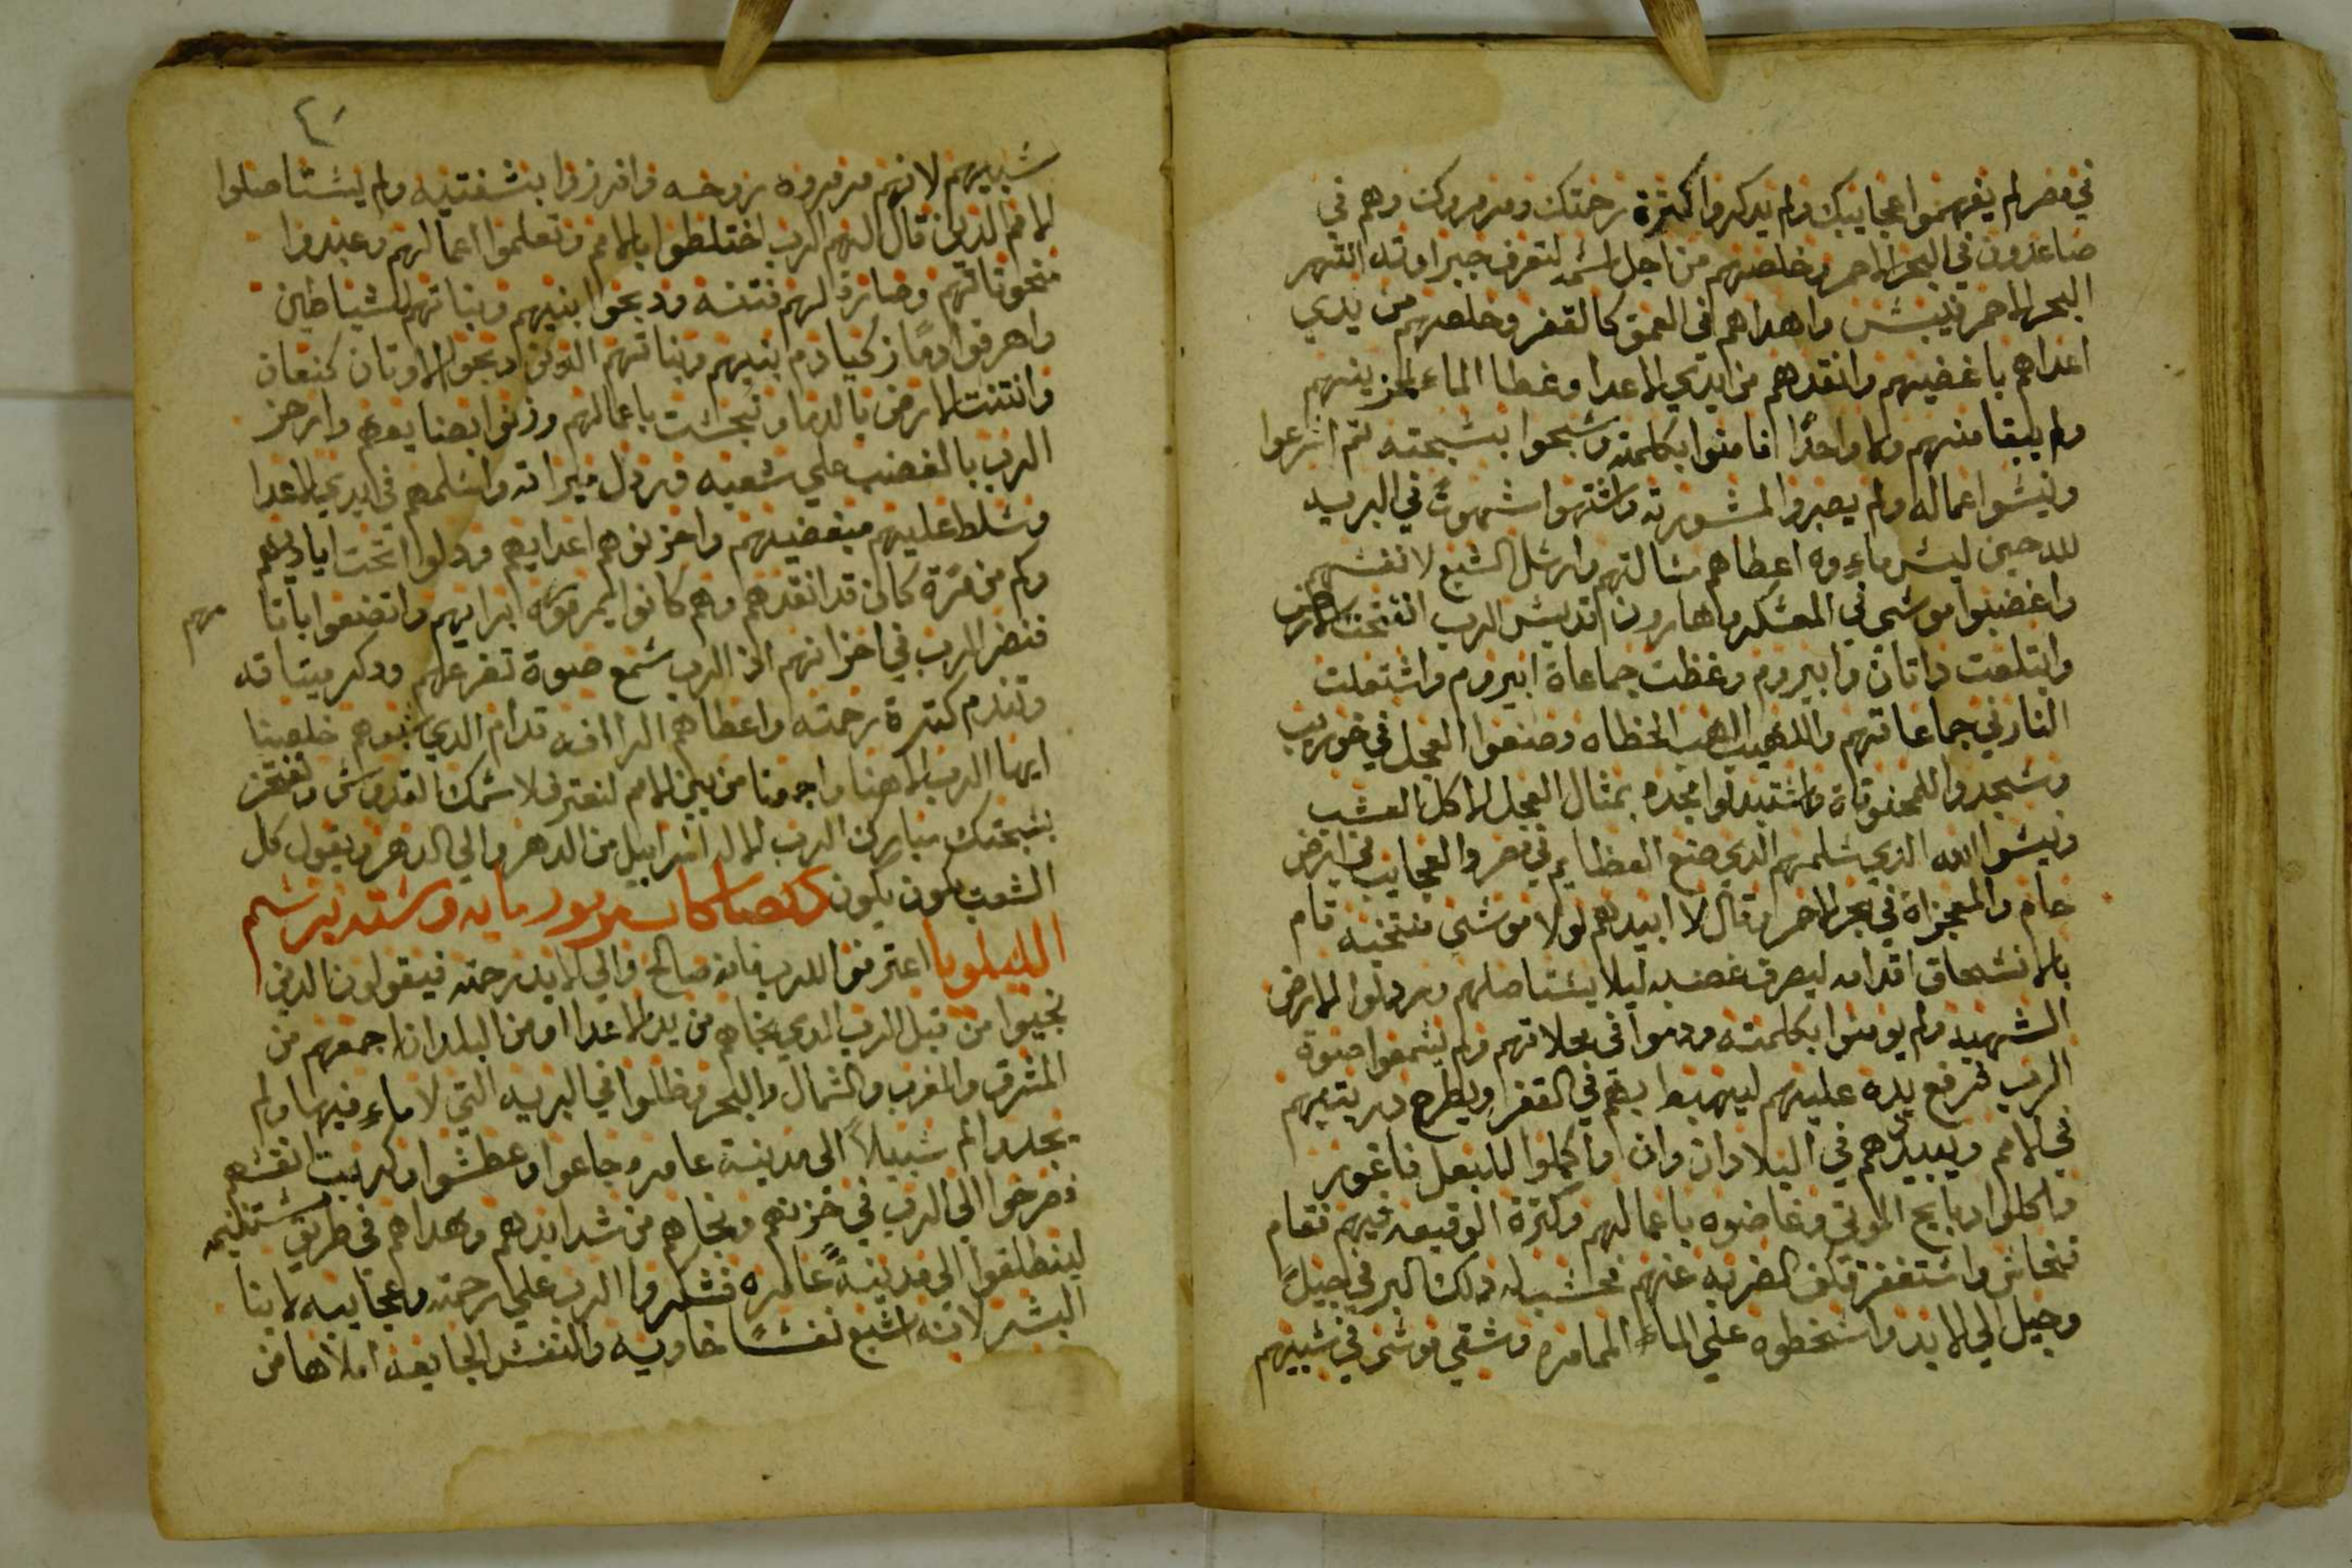 في مصر لم يفهموا عجايبك ولم يدكروا كترة رحمتك ومرمروك وهم في
صاعدون في البحر الاحمر وخلصهم من اجل اسمه لتعرف جبراوته انتهر
البحر الاحمر فيبس واهداهم في العمق كالقفر وخلصهم من يدي
اعداهم باغضيهم وانقدهم من ايدي الاعدا وغطا الماء لمحزينهم
ولم يبقا منهم ولا واحدًا فامنوا بكلمته وسبحوا بتسبحته تم اسرعوا
ونسوا اعماله ولم يصبروا لمشورته واشتهوا شهوتً في البريه
للدحين ليس ماء وه اعطاهم مسالتهم وارسل الشبع لانفسهم
واغضبوا موسى في المعسكر وهارون قديس الرب انفتحت الارض
وابتلعت داتان وابيروم وغطت جماعاة ابيروم واشتعلت
النار في جماعاتهم واللهيب الهب الخطاه وصنعوا العجل في حوريب
وسجدوا للمنحوتاة واستبدلوا مجده بمثال العجل لاكل العشب
ونسوا الله الذي سلمهم الدي صنع العظايم في مصر والعجايب في ارض
حام والمعجزاة في بحر الاحمر وقال لا ابيدهم لولا موسى منتخبه قام
بالانسحاق اقدامه ليصرف غضبه ليلا يستاصلهم وردلوا الارض
الشهيه ولم يومنوا بكلمته ودموا في محلاتهم ولم يسمعوا صوة
الرب فرفع يده عليهم ليهبط بهم في القفر ويطرح دريتهم
في الامم ويبيدهم في البلادان وان واكملوا لبعل فاغور
واكلوا دبايح الموتي وغاضوه باعمالهم وكترة الوقيعه فيهم فقام
فنحاس واستغفر فكف الضربه عنهم فحسب له دلك البر في جيلً
وجيل الي الابد واسخطوه علي الماء المماره وشقي موسى في سبيهم
سبيهم لانهم مرمروه روحه وافرزوا بشفتيه ولم يستاصلوا
الامم الدين قال لهم الرب اختلطوا بالامم وتعلموا اعمالهم وعبدوا
منحوتاتهم وصارة لهم فتنه ودبحوا ابنيهم وبناتهم للشياطين
واهرقوا دمًا زكيا دم بنيهم وبناتهم الدين دبحوا لاوتان كنعان
وانتنت الارض بالدما ونجست باعمالهم وزنوا بصنايعهم وارجز
الرب بالغضب علي شعبه وردل ميراته واسلمهم في ايدي الاعدا
وسلط عليهم مبغضيهم واحزنوهم اعدايهم ودلوا تحت اياديهم
وكم من مرة كان قد انقدهم وهم كانوا يمرمروه ابرايهم واتضعوا باتا
مهم
فنضر الرب في احزانهم اذ الرب سمع صوة تضرعهم ودكر ميتاقه
وتندم كترة رحمته واعطاهم الراافه قدام الدي سبوهم خلصنا
ايها الرب الاهنا واجمعنا من بين الامم لنعترف لاسمك القدوس ونفتخر
بتسبحتك مبارك الرب الاله اسراييل من الدهر والي الدهر ويقول كل
الشعب يكون يكون
الليلويا اعترفوا للرب فانه صالح والي الابد رحمته فيقولون الدين
نجيوا من قبل الرب الدي نجاهم من يد الاعدا ومن البلدان اجمعهم من
المشرق والمغرب والشمال والبحر وظلوا في البريه التي لا ماء فيها ولم
يجدوا لهم سبيلاً الى مدينة عامره جاعوا وعطشوا وكربت انفسهم
فصرخوا الي الرب في حزنهم ونجاهم من شدايدهم وهداهم في طريق مستقيمه
لينطلقوا الي مدينةً عامره فشكروا الرب علي رحمته وعجايبه لابنا
البشر لانه اشبع نفسًا خاويه والنفس الجايعه املاها من